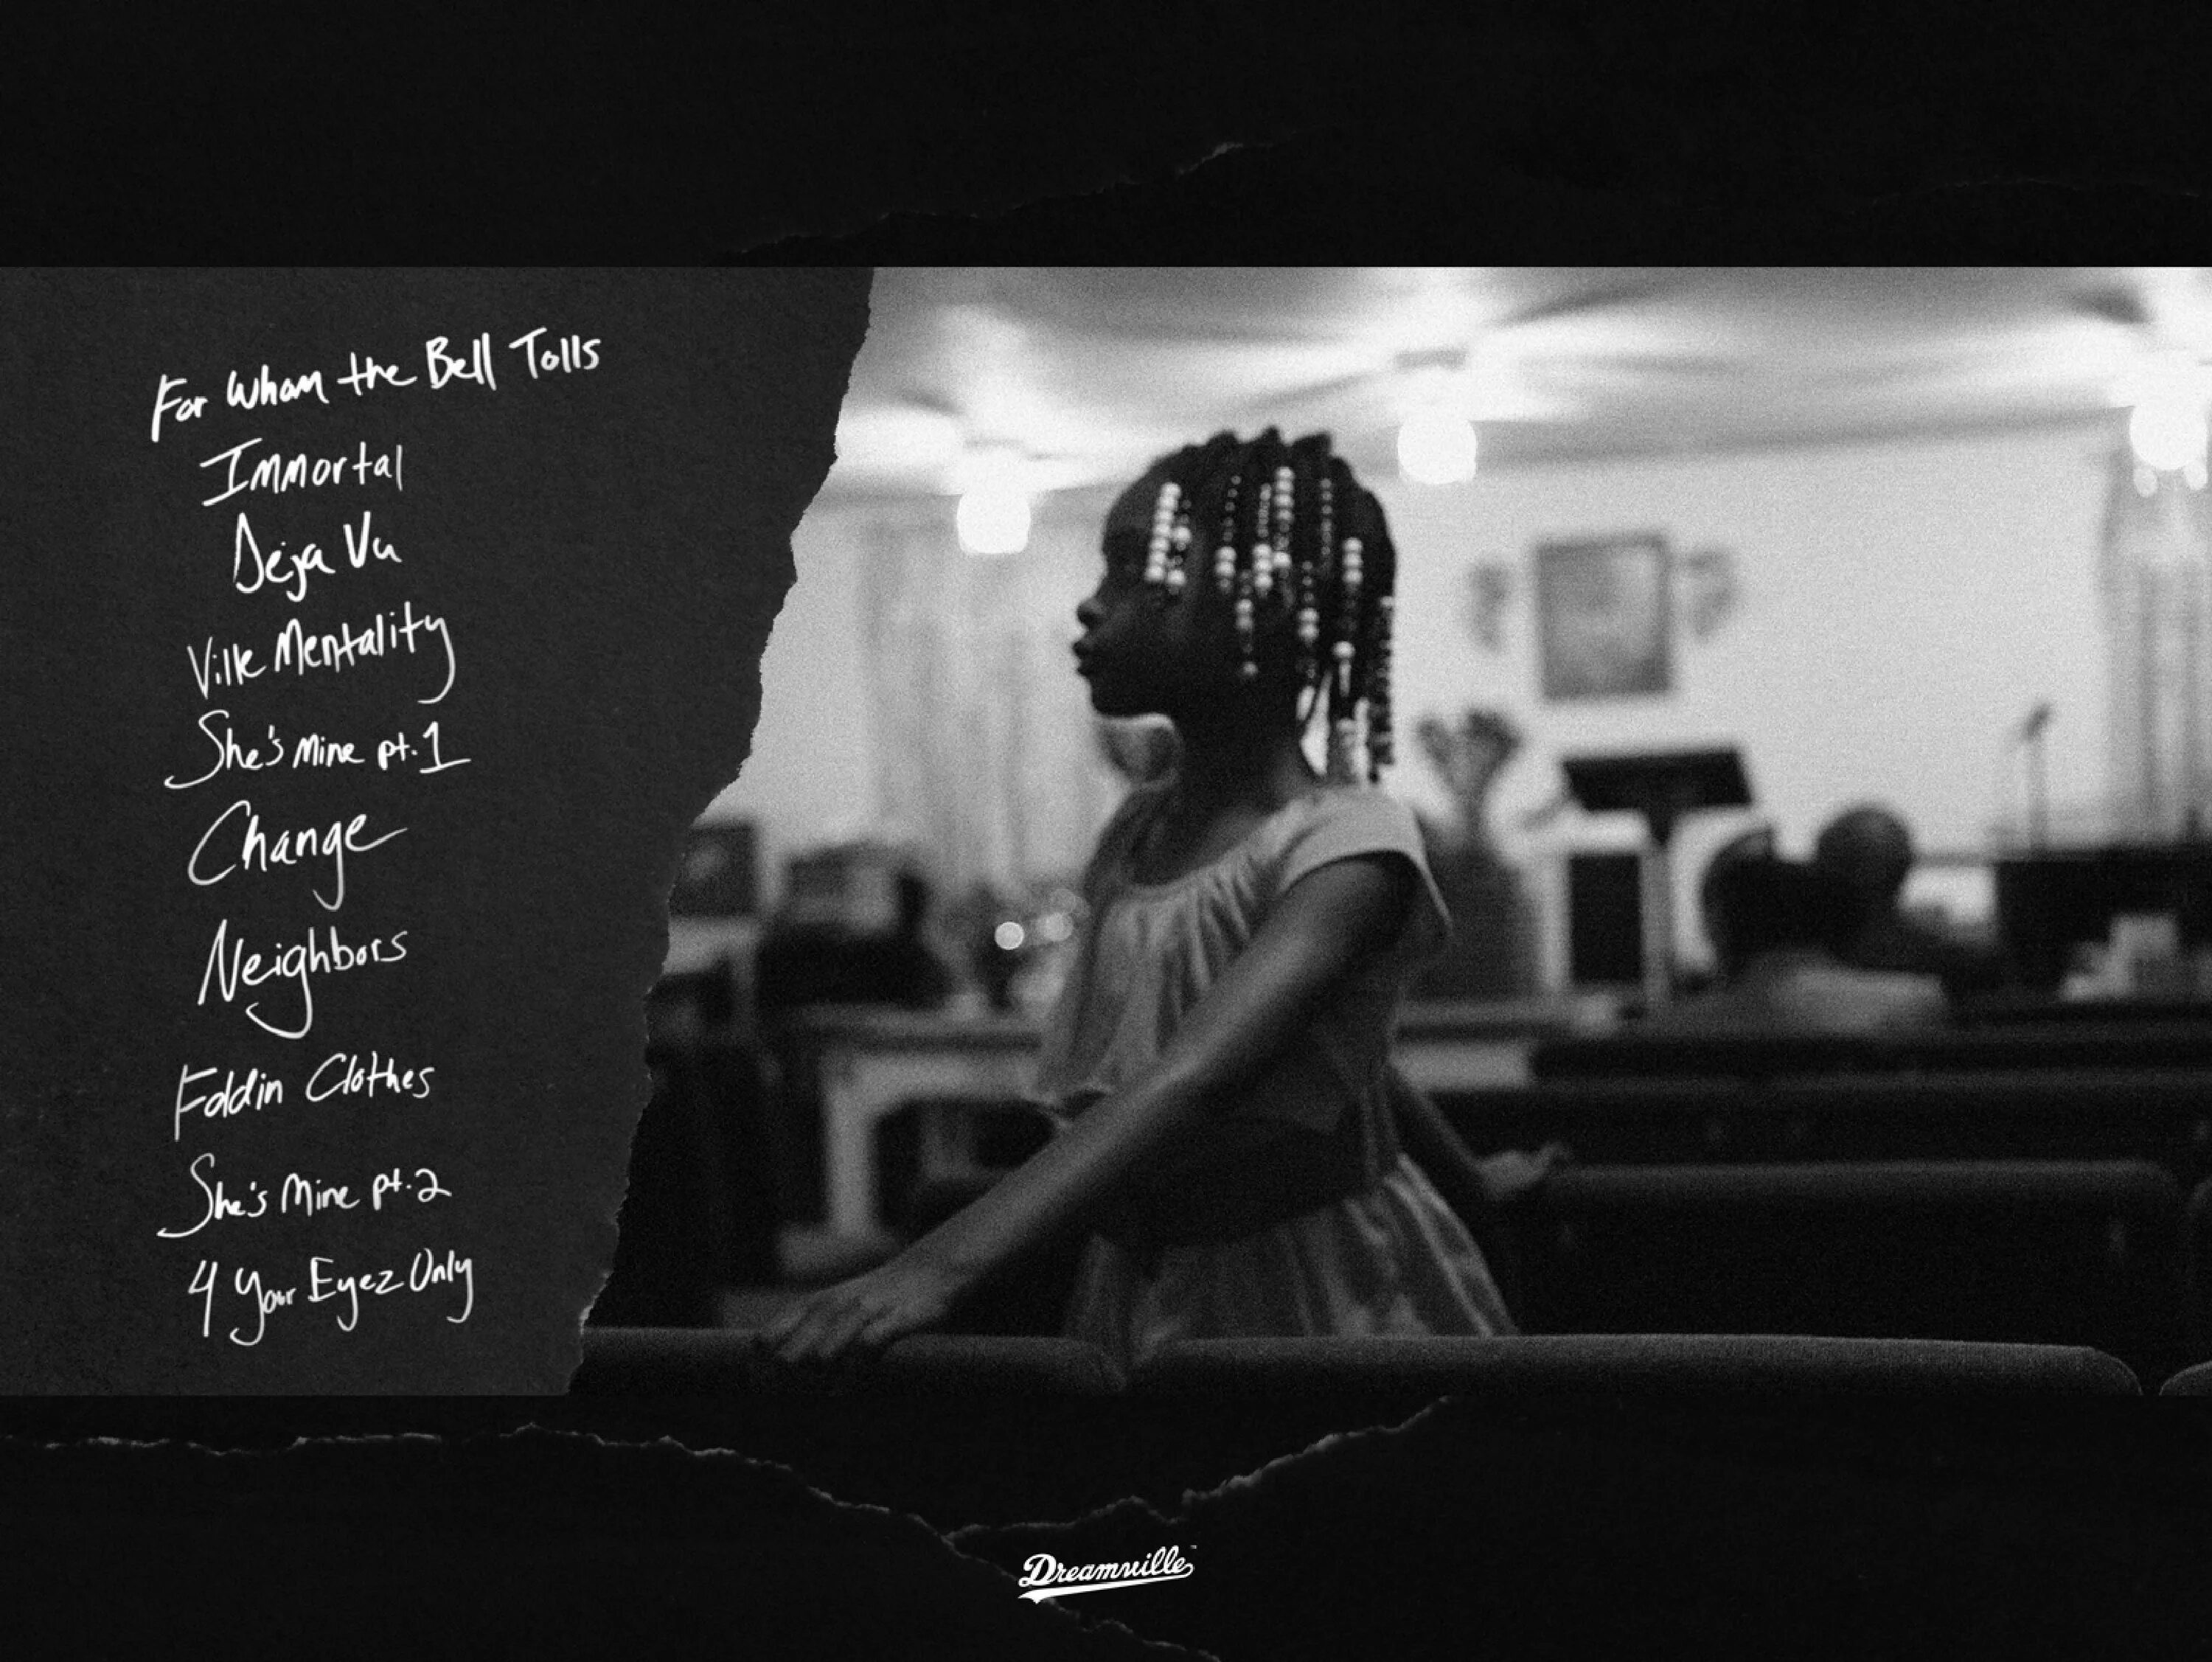 For Whom the Bell Tolls
Immortal
Deja Vu
Ville Mentality
She's Mine pt.1
Change
Neighbors
Foldin Clothes
She's Mine pt.2
4 Your Eyez Only
Dreamville